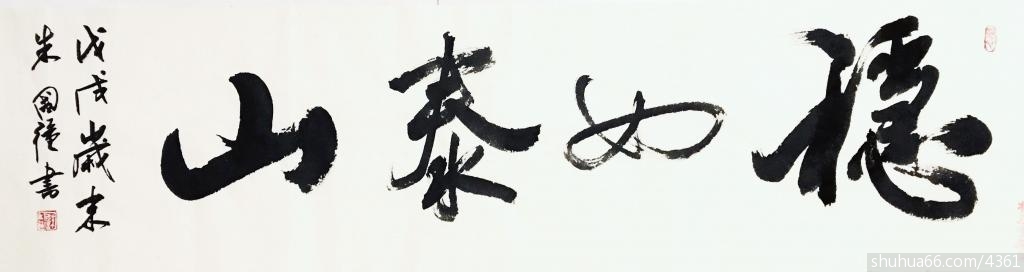 稳如泰山
戊戌岁末
朱国强书
shuhua66.com/4361